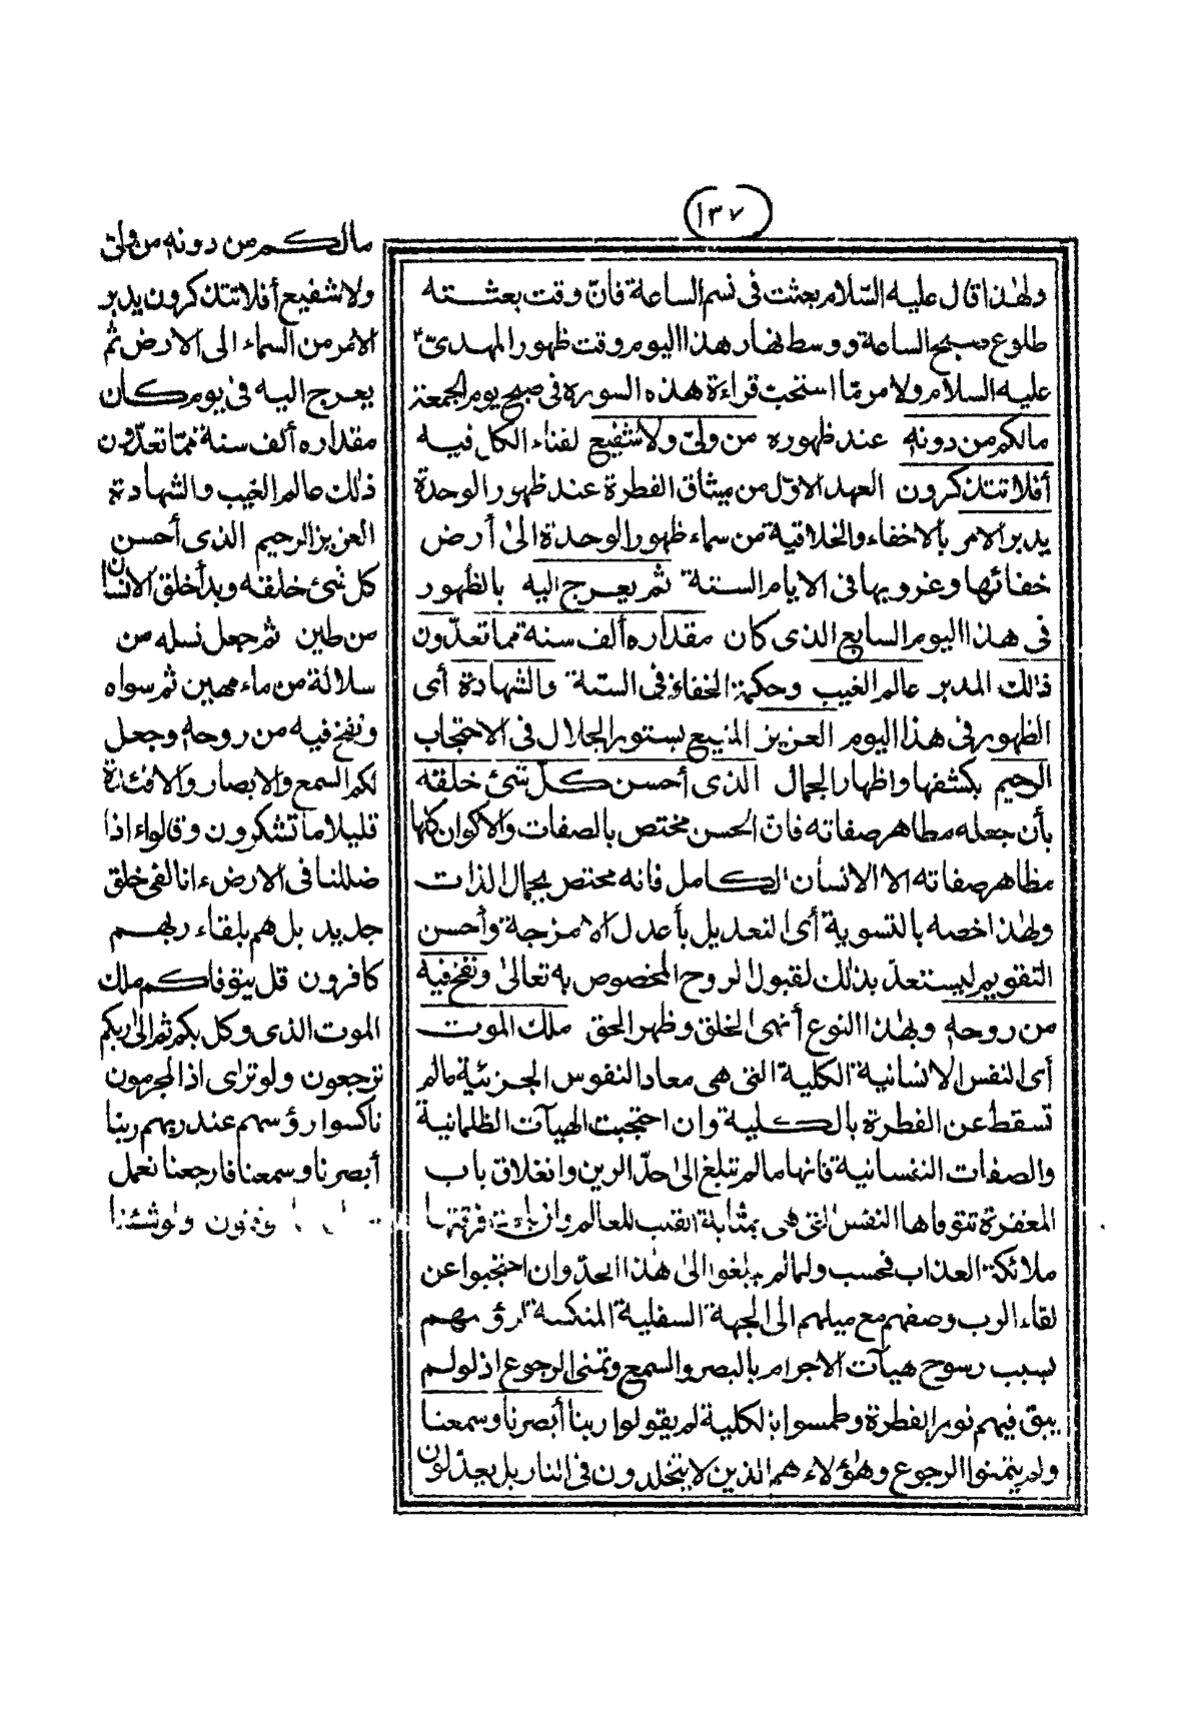 ١٣٧
ولهذا قال عليه السلام بعثت فى نسم الساعة فانّ وقت بعثته
طلوع صبح الساعة ووسط نهار هذا اليوم وقت ظهور المهدىّ
عليه السلام ولامر مّا استحبّ قراءة هذه السورة فى صبح يوم الجمعة
مالكم من دونه عند ظهوره من ولىّ ولا شفيع لفناء الكل فيه
أفلا تتذكرون العهد الاوّل من ميثاق الفطرة عند ظهور الوحدة
يدبر الامر بالاخفاء والخلاقية من سماء ظهور الوحدة الى أرض
خفائها وغروبها فى الايام الستة ثم يعرج اليه بالظهور
فى هذا اليوم السابع الذى كان مقداره ألف سنة مما تعدّون
ذلك المدبر عالم الغيب وحكمة الخفاء فى الستة والشهادة أى
الظهور فى هذا اليوم العزيز المنيع بستور الجلال فى الاحتجاب
الرحيم بكشفها واظهار الجمال الذى أحسن كلّ شئ خلقه
بأن جعله مظاهر صفاته فانّ الحسن مختص بالصفات والاكوان كلها
مظاهر صفاته الا الانسان الكامل فانه مختص بجمال الذات
ولهذا خصه بالتسوية أى التعديل بأعدل الامزجة وأحسن
التقويم ليستعدّ بذلك لقبول الروح المخصوص به تعالى ونفخ فيه
من روحه وبهذا النوع أنهى الخلق وظهر الحق ملك الموت
أى النفس الانسانية الكلية التى هى معاد النفوس الجزئية مالم
تسقط عن الفطرة بالكلية وان احتجبت الهيآت الظلمانية
والصفات النفسانية فانها مالم تبلغ الى حدّ الرين وانغلاق باب
المغفرة تتوفاها النفس التى هى بمثابة القلب للعالم وان
ملائكة العذاب فحسب ولمالم يبلغوا الى هذا الحدّ وان احتجبوا عن
لقاء الرب وصفهم مع ميلهم الى الجهة السفلية المنكسة لرؤسهم
بسبب رسوخ هيآت الاجرام بالبصر والسمع وتمنى الرجوع اذ لولم
يبق فيهم نور الفطرة وطمسوا بالكلية لم يقولوا ربنا أبصرنا وسمعنا
ولم يتمنوا الرجوع وهؤلاء هم الذين لا يتخلدون فى النار بل يعذّبون
مالكم من دونه من ولىّ
ولا شفيع أفلا تتذكرون يدبر
الامر من السماء الى الارض ثم
يعرج اليه فى يوم كان
مقداره ألف سنة مما تعدّون
ذلك عالم الغيب والشهادة
العزيز الرحيم الذى أحسن
كل شئ خلقه وبدأ خلق الانسان
من طين ثم جعل نسله من
سلالة من ماء مهين ثم سواه
ونفخ فيه من روحه وجعل
لكم السمع والابصار والافئدة
قليلا ما تشكرون وقالوا ءاذا
ضللنا فى الارض ءانا لفى خلق
جديد بل هم بلقاء ربهم
كافرون قل يتوفاكم ملك
الموت الذى وكل بكم ثم الى ربكم
ترجعون ولو ترى اذ المجرمون
ناكسوا رؤسهم عند ربهم ربنا
أبصرنا وسمعنا فارجعنا نعمل
ولو شئنا